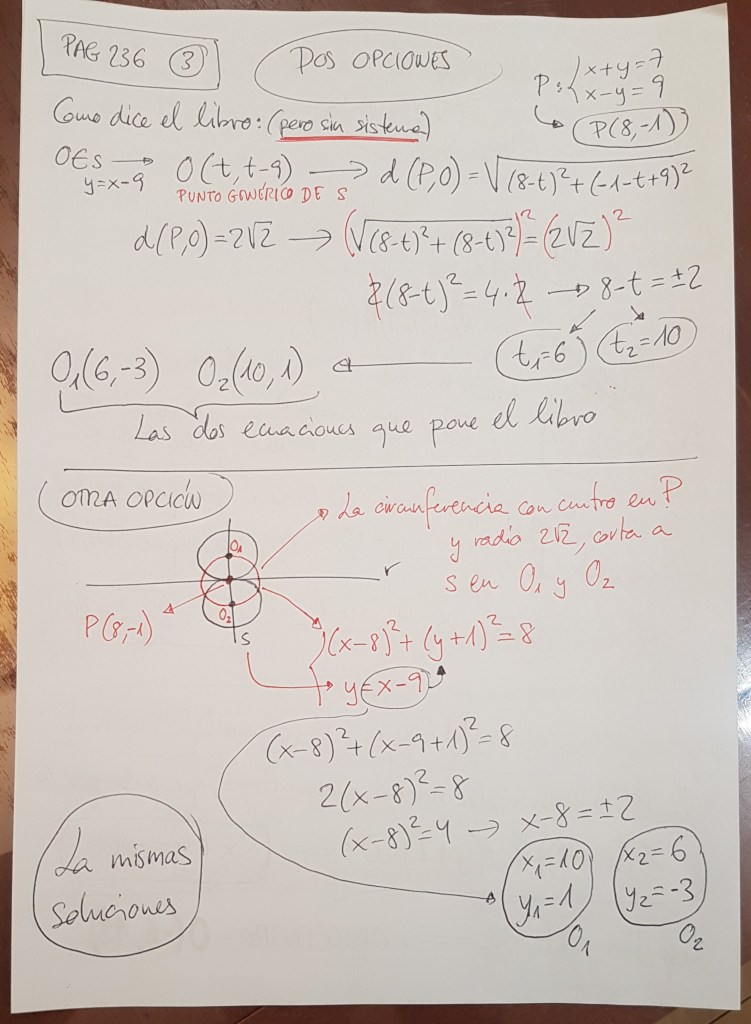 PAG 236 ③
DOS OPCIONES
P: { x+y=7
x-y=9
P(8,-1)
Como dice el libro: (pero sin sistema)
O∈s → O(t, t-9) → d(P,O) = √(8-t)²+(-1-t+9)²
y=x-9
PUNTO GENÉRICO DE S
d(P,O)=2√2 → (√(8-t)²+(8-t)²)² = (2√2)²
2(8-t)² = 4·2 → 8-t = ±2
t₁=6 t₂=10
O₁(6,-3) O₂(10,1) ←
Las dos ecuaciones que pone el libro
OTRA OPCIÓN
La circunferencia con centro en P
y radio 2√2, corta a
s en O₁ y O₂
O₁
r
P(8,-1)
O₂
s
(x-8)²+(y+1)²=8
y=x-9
(x-8)²+(x-9+1)²=8
2(x-8)²=8
(x-8)²=4 → x-8=±2
x₁=10 x₂=6
y₁=1 y₂=-3
O₁ O₂
La mismas
soluciones